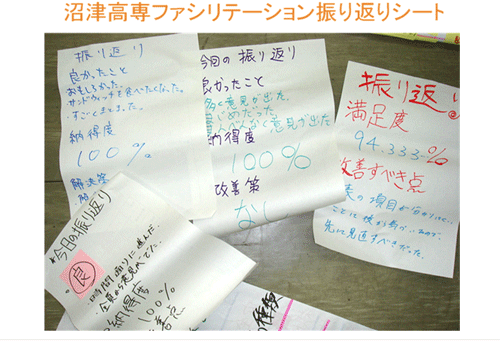 沼津高専ファシリテーション振り返りシート
振り返り
良かったこと
おもしろかった。
サンドウィッチを食べたくなった。
すごくまとまった。
納得度
100%
解決策
今回の振り返り
良かったこと
多く意見が出た。
まじめだった
意見が出た
納得度
100%
改善策
なし
振り返り
満足度
94.333…%
改善すべき点
の項目が
先に見直すべきだった。
*今日の振り返り
良
時間通りに進んだ。
全員から意見がでた。
納得度
100%
改善点
の種類